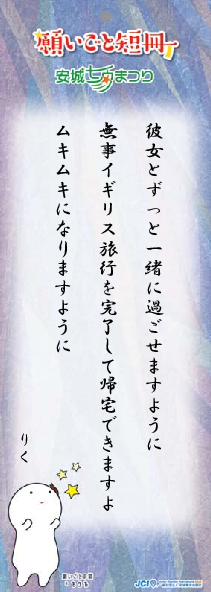 願いごと短冊
安城七夕まつり
彼女とずっと一緒に過ごせますように
無事イギリス旅行を完了して帰宅できますよ
ムキムキになりますように
りく
願いごと短冊
JCI